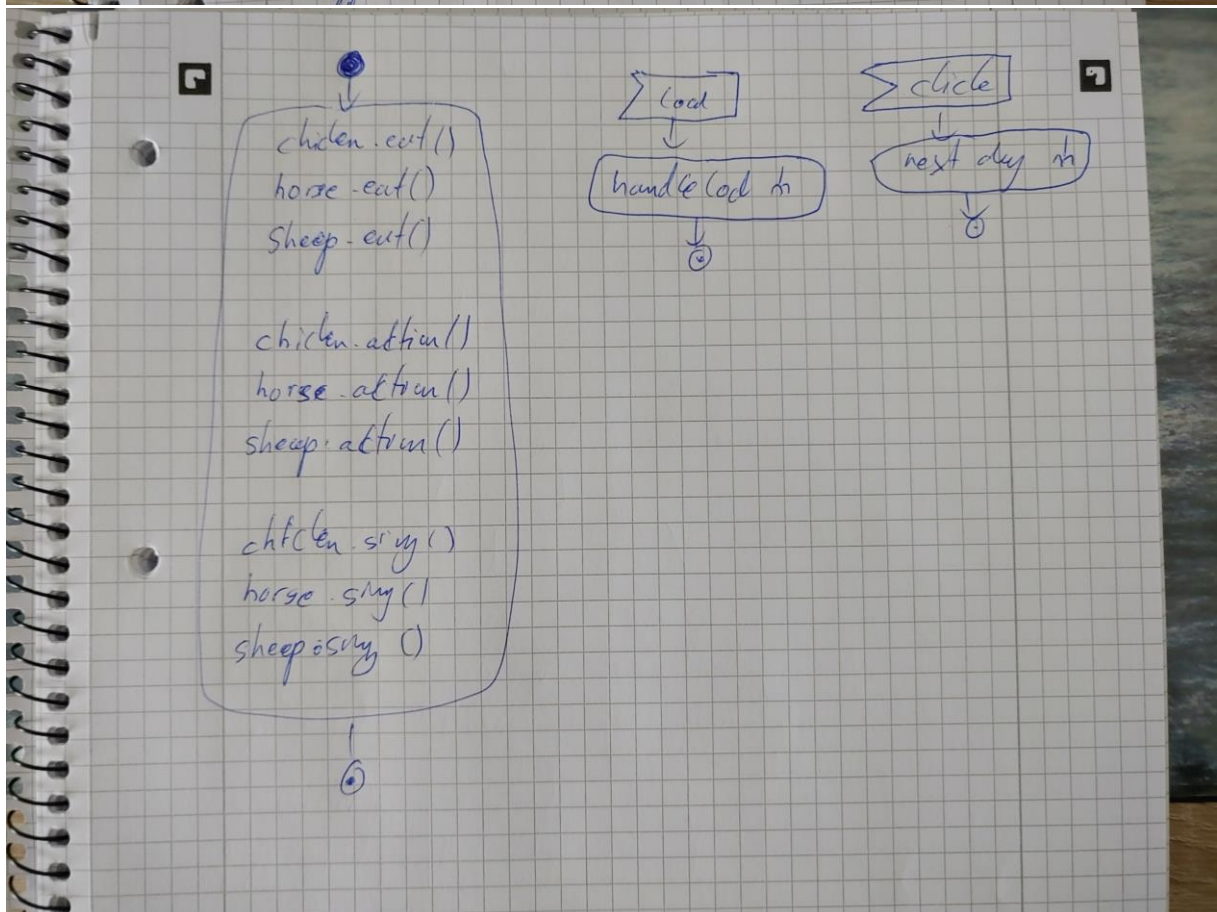 chicken.eat()
horse.eat()
sheep.eat()
chicken.action()
horse.action()
sheep.action()
chicken.sing()
horse.sing()
sheep.sing()
load
handle load
click
next day